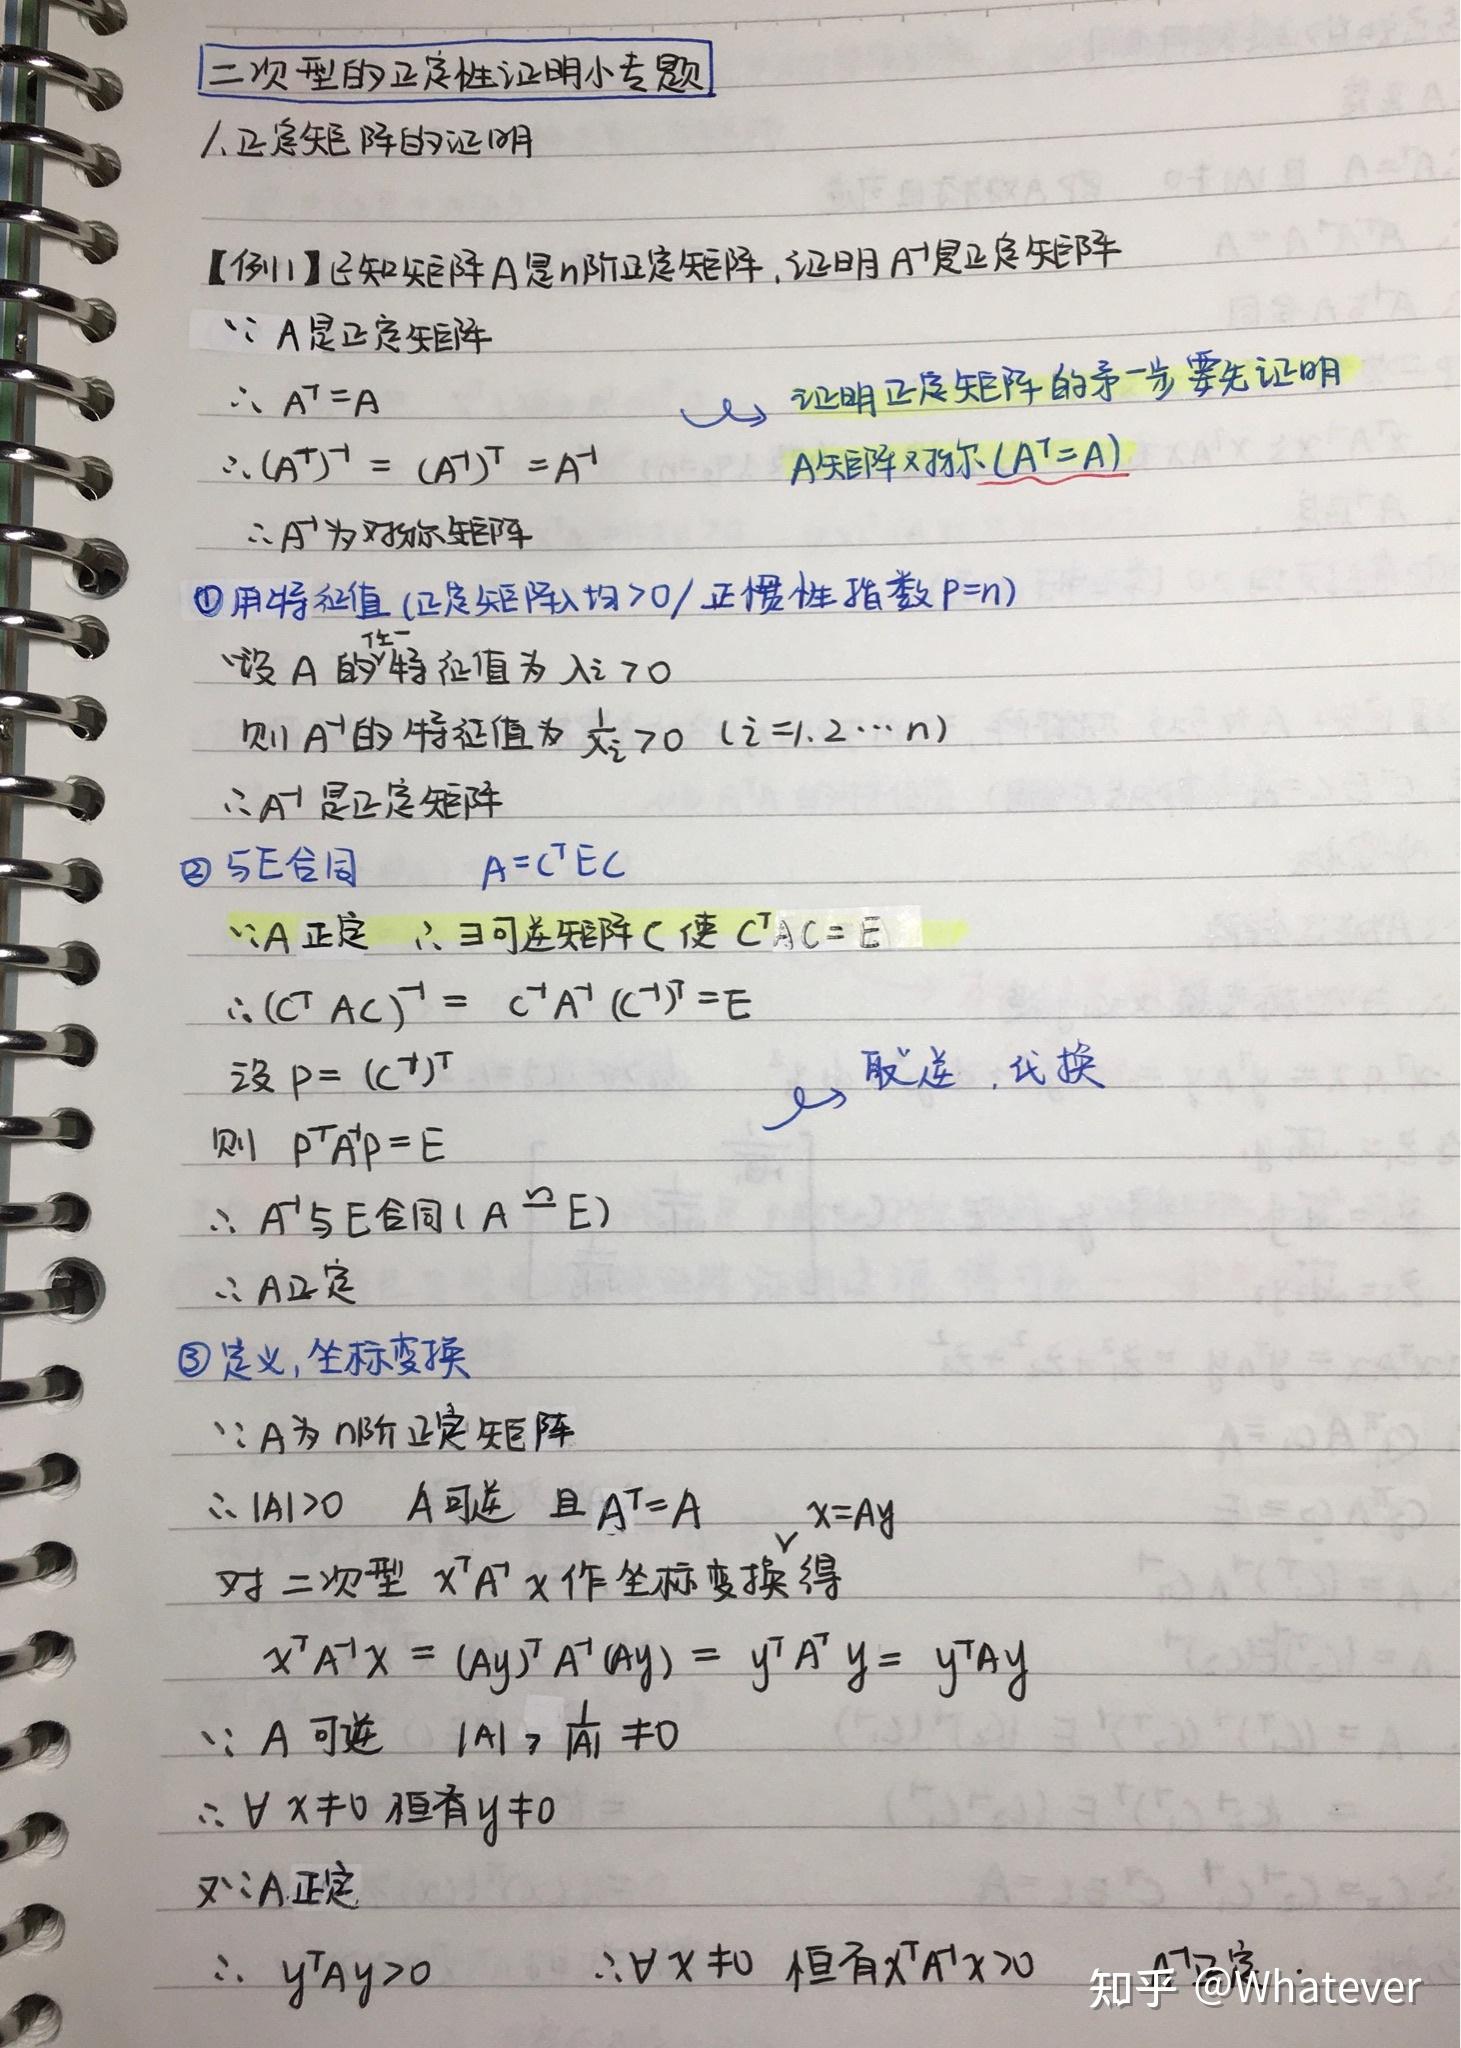 二次型的正定性证明小专题
1.正定矩阵的证明
【例1】已知矩阵A是n阶正定矩阵,证明A⁻¹是正定矩阵
∵ A是正定矩阵
∴ Aᵀ=A
证明正定矩阵的第一步要先证明
∴(Aᵀ)⁻¹ = (A⁻¹)ᵀ = A⁻¹
A矩阵对称(Aᵀ=A)
∴A⁻¹为对称矩阵
①用特征值(正定矩阵λ均>0/正惯性指数P=n)
设A的任一特征值为λi>0
则A⁻¹的特征值为 1/λi >0 (i=1.2…n)
∴A⁻¹是正定矩阵
②与E合同 A=CᵀEC
∵A正定 ∴∃可逆矩阵C使CᵀAC=E
∴(CᵀAC)⁻¹ = C⁻¹A⁻¹(C⁻¹)ᵀ=E
设P=(C⁻¹)ᵀ
取逆,代换
则 PᵀA⁻¹P=E
∴ A⁻¹与E合同(A ≃ E)
∴A正定
③定义,坐标变换
∵A为n阶正定矩阵
∴|A|>0 A可逆 且Aᵀ=A x=Ay
对二次型 xᵀA⁻¹x作坐标变换得
xᵀA⁻¹x = (Ay)ᵀA⁻¹(Ay) = yᵀAᵀy = yᵀAy
∵ A可逆 |A|, 1/|A| ≠0
∴∀x≠0恒有y≠0
又∵A正定
∴ yᵀAy>0 ∴∀x≠0 恒有xᵀA⁻¹x>0 A⁻¹正定.
知乎 @Whatever